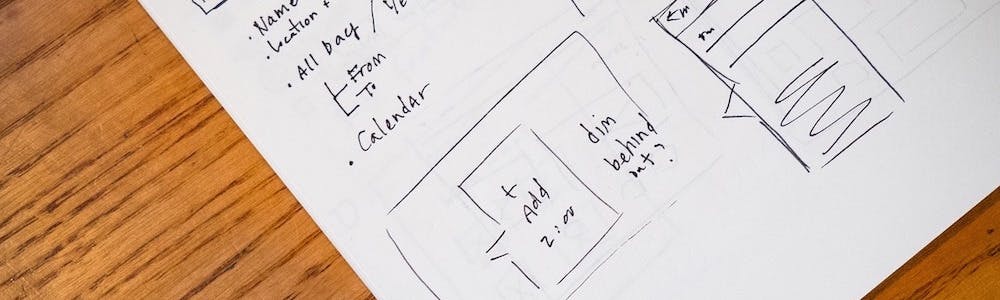 • Name
• Location +
• All Day / Ye
From
To
• Calendar
+
Add
2:00
dim
behind
out?